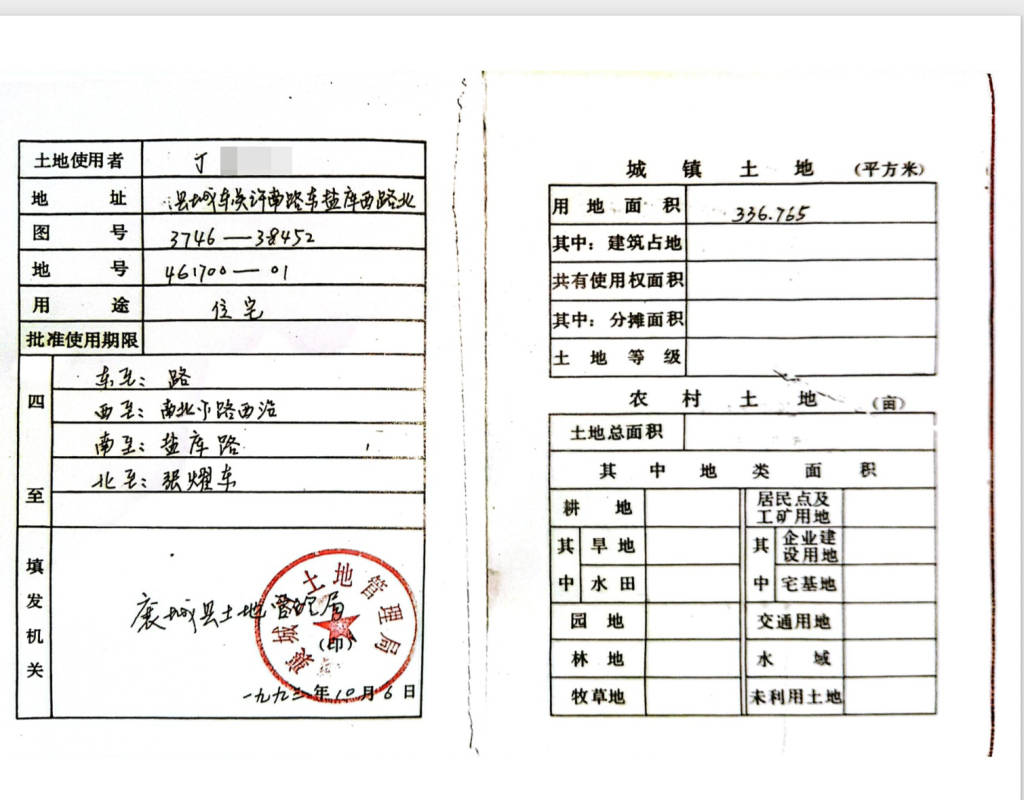 土地使用者 丁
地址 县城东关许南路东盐库西路北
图号 3746—38452
地号 461700—01
用途 住宅
批准使用期限
四至
东至：路
西至：南北小路西沿
南至：盐库路
北至：张耀车
填发机关
襄城县土地管理局
（印）
襄城县土地管理局
一九九三年10月6日
城镇土地 （平方米）
用地面积 336.765
其中：建筑占地
共有使用权面积
其中：分摊面积
土地等级
农村土地 （亩）
土地总面积
其中地类面积
耕地 居民点及工矿用地
其中 旱地 其中 企业建设用地
水田 宅基地
园地 交通用地
林地 水域
牧草地 未利用土地